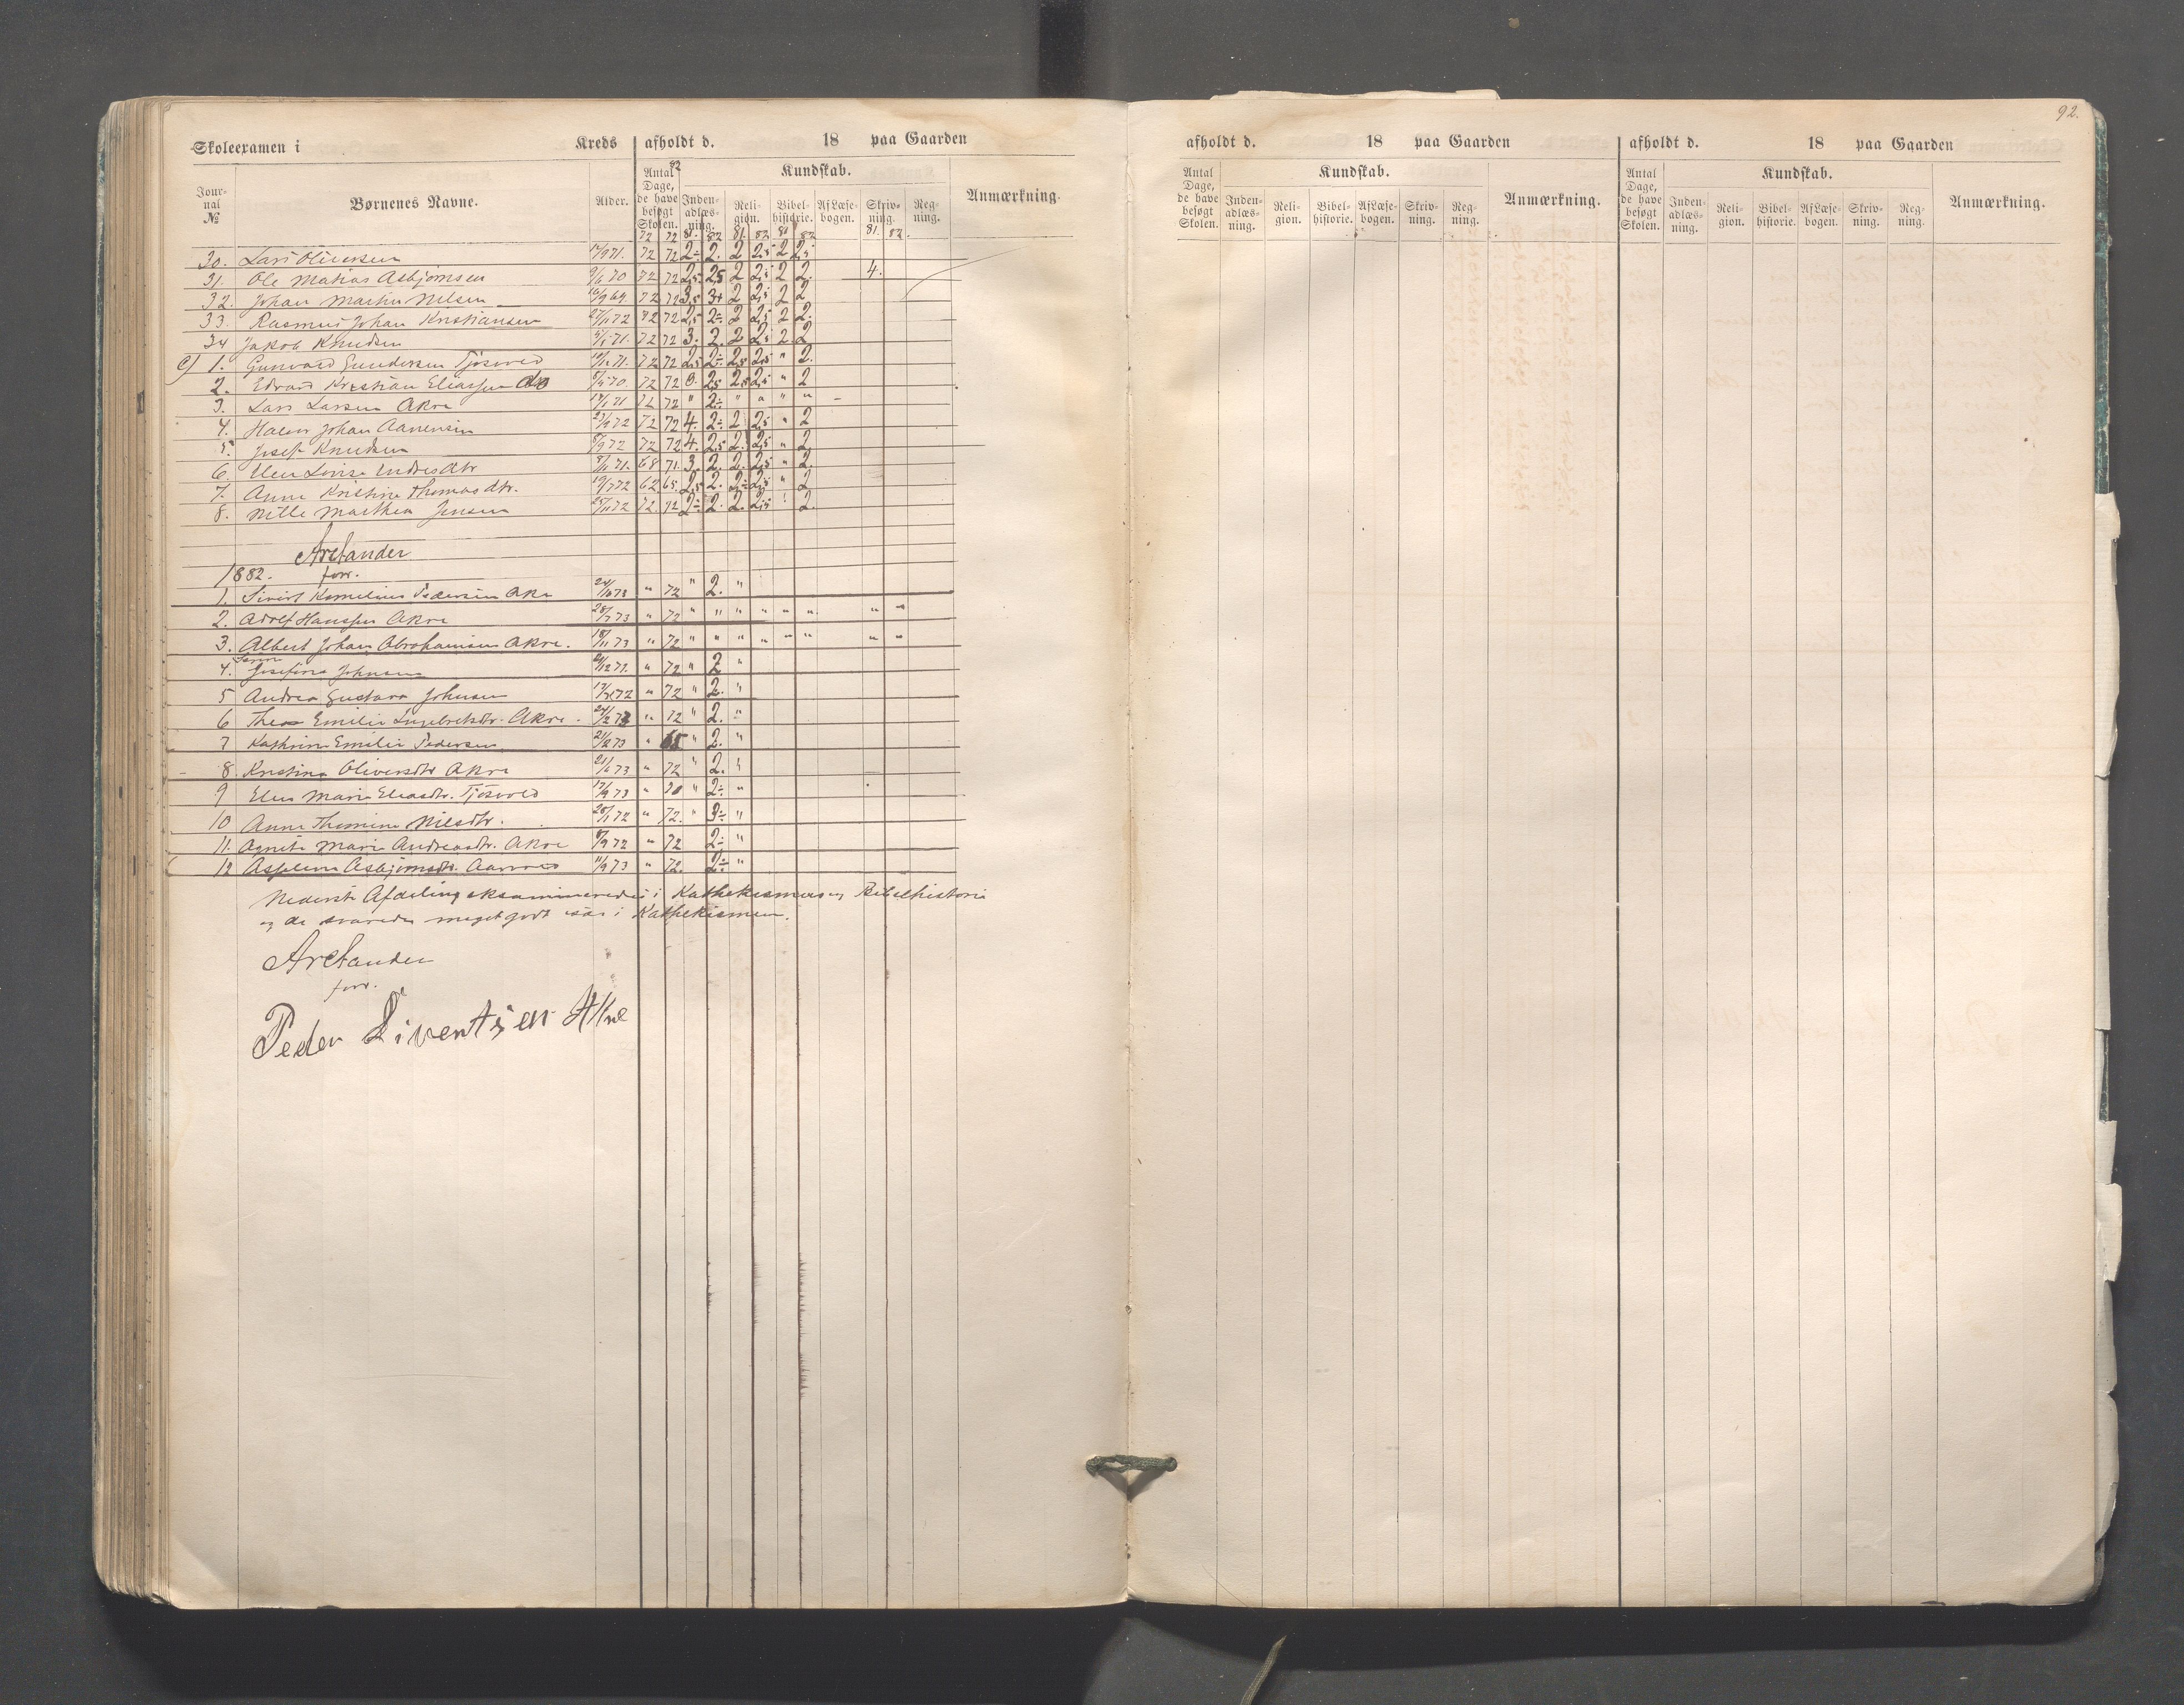 92.
Skoleexamen i Kreds afholdt d. 18 paa Gaarden
Jour-nal № Børnenes Navne. Alder. Antal Dage, de have besøgt Skolen. Kundskab. Inden-adlæs-ning. Reli-gion. Bibel-historie. Af Læse-bogen. Skriv-ning. Reg-ning. Anmærkning.
82
72 72 81. 82 81. 82 81 82 81. 82.
30. Lars Oliversen 71. 72 72 2÷ 2. 2 2,5 2 2,5
31. Ole Matias Asbjørnsen 9/6 70 72 72 2,5 2,5 2 2,5 2 2. 4.
32. Johan Martin Nilsen 16/9 69. 72 72 3,5 3+ 2 2,5 2 2
33. Rasmus Johan Kristiansen 27/11 72 72 72 2,5 2÷ 2 2,5 2 2.
34 Jakob Knudsen 5/1 71. 72 72 3. 2. 2 2,5 2 2
C) 1. Gunvald Gundersen Tjøsvold 71. 72 72 2,5 2÷ 2,5 2,5 " 2.
2. Edvard Kristian Eliassen do 70. 72 72 3. 2,5 2,5 2,5 " 2
3. Lars Larsen Akre 71 72 72 " 2÷ " " " " -
4. Halvor Johan Aanensen 72 72 72 4. 2÷ 2 2,5 " 2
5. Josef Knudsen 8/9 72 72 72 4. 2,5 2. 2,5 " 2
6. Elen Lovise Endresdtr 71. 68 71. 3. 2. 2. 2,5 " 2.
7. Anne Kristine Thomasdtr. 19/7 72 62 65. 2,5 2. 2÷ 2,5 " 2
8. Nille Marthea Jensen 25/11 72 72. 72 2÷ 2. 2. 2,5 " 2.
Arctander
1882. forr.
1. Sivert Kornelius Pedersen Akre 73 " 72 " 2. "
2. Adolf Hanssen Akre 28/7 73 " 72 " " " " " " " "
3. Albert Johan Abrahamsen Akre. 18/11 73 " 72 " " " " " " " "
4. Josefine Johnsen 72. " 72 " 2 "
5 Andrea Gustava Johnsen 72 " 72 " 2. "
6 Thea Emilie Ingebretsdtr. Akre. 24/2 73 " 72 " 2. "
7 Kathrine Emilie Pedersen 21/2 73 " 65 " 2. "
8. Kristine Oliversdtr Akre 21/6 73 " 72 " 2. "
9 Elen Marie Eliasdtr. Tjøsvold 17/9 73 " 70 " 2÷ "
10 Anne Thomine Nilsdtr. 28/1 72 " 72. " 3÷ "
11. Agnete Marie Andreasdtr. Akre 9/9 72 " 72 2÷ "
12 Asbjørnsdtr. 11/9 73 " 72. 2÷ "
Nederste Afdeling eksamineredes i Kathekismus og Bibelhistorie
og de svarede meget godt især i Kathekismen.
Arctander
forr.
Peder Sivertsen Akre
afholdt d. 18 paa Gaarden
Antal Dage, de have besøgt Skolen. Kundskab. Inden-adlæs-ning. Reli-gion. Bibel-historie. Af Læse-bogen. Skriv-ning. Reg-ning. Anmærkning.
afholdt d. 18 paa Gaarden
Antal Dage, de have besøgt Skolen. Kundskab. Inden-adlæs-ning. Reli-gion. Bibel-historie. Af Læse-bogen. Skriv-ning. Reg-ning. Anmærkning.